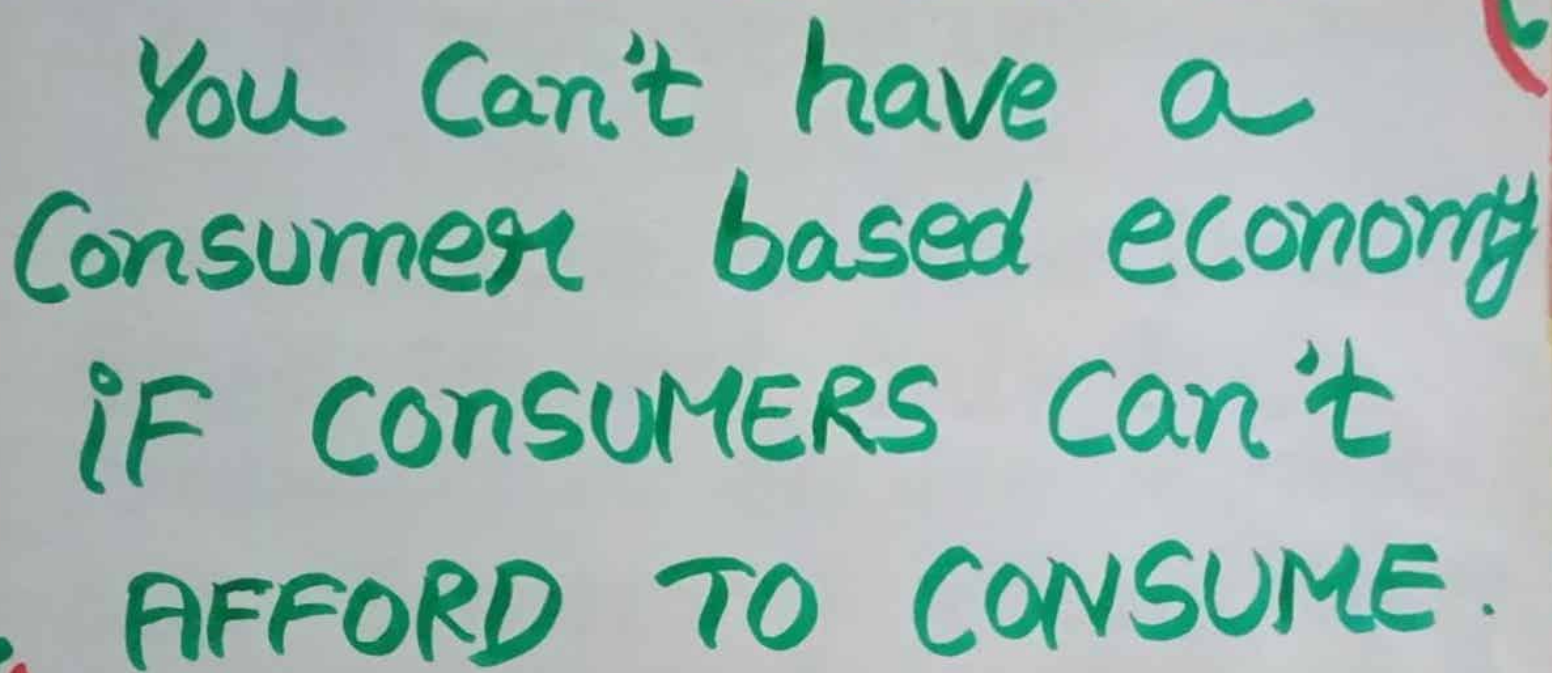 You Can't have a
Consumer based economy
iF CONSUMERS Can't
AFFORD TO CONSUME.